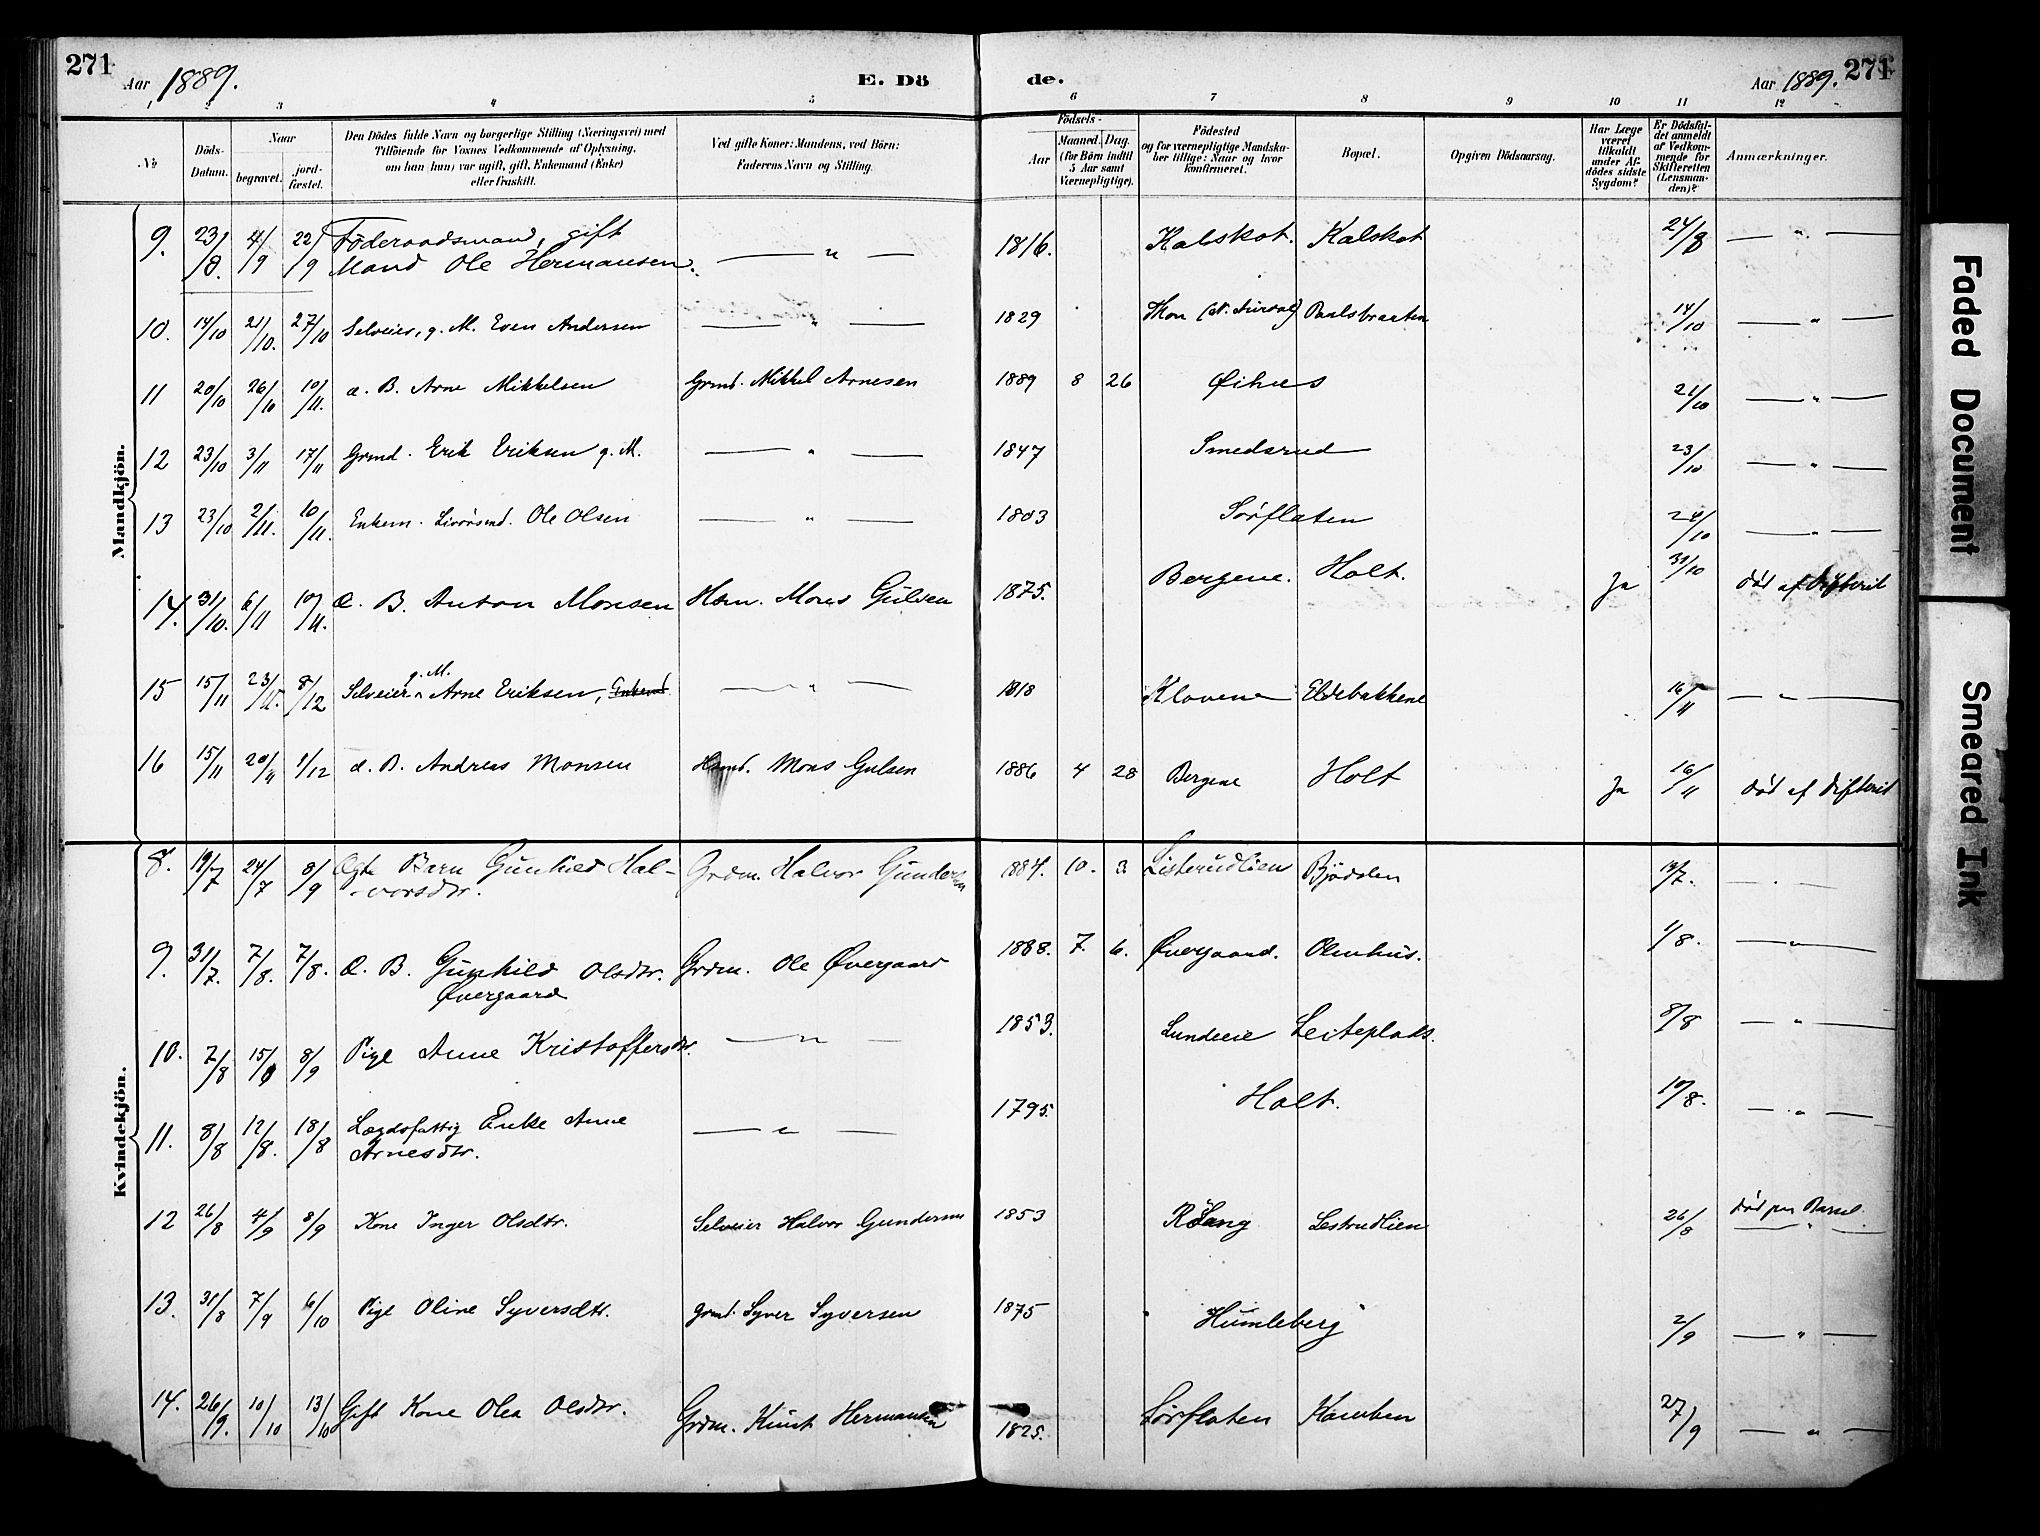 271
Aar 1889.
E. Dö
de.
Aar 1889.
271
2 3 4 5 6 7 8 9 10 11 12
No
Döds-Datum.
Naar
begravet.
jordfæstet.
Den Dödes fulde Navn og borgerlige Stilling (Næringsvei) med
Tilföiende for Voxnes Vedkommende af Oplysning,
om han (hun) var ugift, gift, Enkemand (Enke)
eller fraskilt.
Ved gifte Koner: Mandens, ved Börn:
Faderens Navn og Stilling.
Födsels-
Aar
Maaned. Dag.
(for Börn indtil
5 Aar samt
Værnepligtige).
Födested
og for værnepligtige Mandskaber tillige: Naar og hvor
konfirmeret.
Bopæl.
Opgiven Dödsaarsag.
Har Læge
været
tilkaldt
under Afdödes sidste
Sygdom?
Er Dödsfaldet anmeldt
af Vedkommende for
Skifteretten
(Lensmanden)?
Anmærkninger.
Mandkjön.
9. 23/8. 4/9 22/9 Föderaadsmand, gift
Mand Ole Hermansen. — " — 1816. Kalskot. Kalskot 24/8 — " —
10. 14/10 21/10. 27/10 Selveier, g. M. Even Andersen — " — 1829 Paalsbraaten 14/10 — " —
11 20/10 26/10 10/11. æ. B. Arne Mikkelsen Grmd. Mikkel Arnesen 1889 8 26 Øihus 21/10 — " —
12 23/10 3/11 17/11 Grmd. Erik Eriksen g. M. — " — 1847 Smedsrud 23/10 — " —
13 23/10 2/11. 10/11. Enkem. Ole Olsen — " — 1803 Sørflaten 24/10 — " —
14. 31/10. 6/11 10/11. Æ. B. Anton Monsen Hsm. Mons Gulsen 1875. Bergene. Holt. Ja 31/10 død af Difterit
15 15/11 23/11. 8/12 Selveier g. M. Arne Eriksen, — " — 1818 Klovene Eldebakkene 16/11 — " —
16 15/11 20/11 1/12 æ. B. Andreas Monsen Hsmd. Mons Gulsen 1886 4 28 Bergene Holt Ja 16/11 død af Difterit
Kvindekjön.
8. 19/7 24/7 8/9 Ægte Barn Gunhild Hal-
vorsdtr. Grdm. Halvor Gundersen 1884. 10. 3. Listerudlien Bjødalen /7. — " —
9. 31/7. 7/8. 7/8. Æ. B. Gunhild Olsdtr.
Øvergaard Grdm. Ole Øvergaard 1888. 7. 6. Øvergaard. Olmhus. 1/8. — " —
10. 7/8 15/8 8/9 Pige Anne Kristoffersdtr. — " — 1853. Lundeeie Leiteplads. 8/8 — " —
11. 8/8 12/8. 18/8 Lægdsfattig Enke Anne
Arnesdtr. — " — 1795. Holt. 10/8. — " —
12 26/8 4/9 8/9 Kone Inger Olsdtr. Selveier Halvor Gundersen 1853 Lestrudlien 26/8 død paa Barsel. — " —
13. 31/8 7/9 6/10 Pige Oline Syversdtr. Grmd. Syver Syversen 1875 Humleberg 2/9 — " —
14. 26/9. 10/10 13/10 Gift Kone Olea Olsdtr. Grdm. Knut Hermansen 1825. Sørflaten 27/9 — " —
Faded Document
Smeared Ink